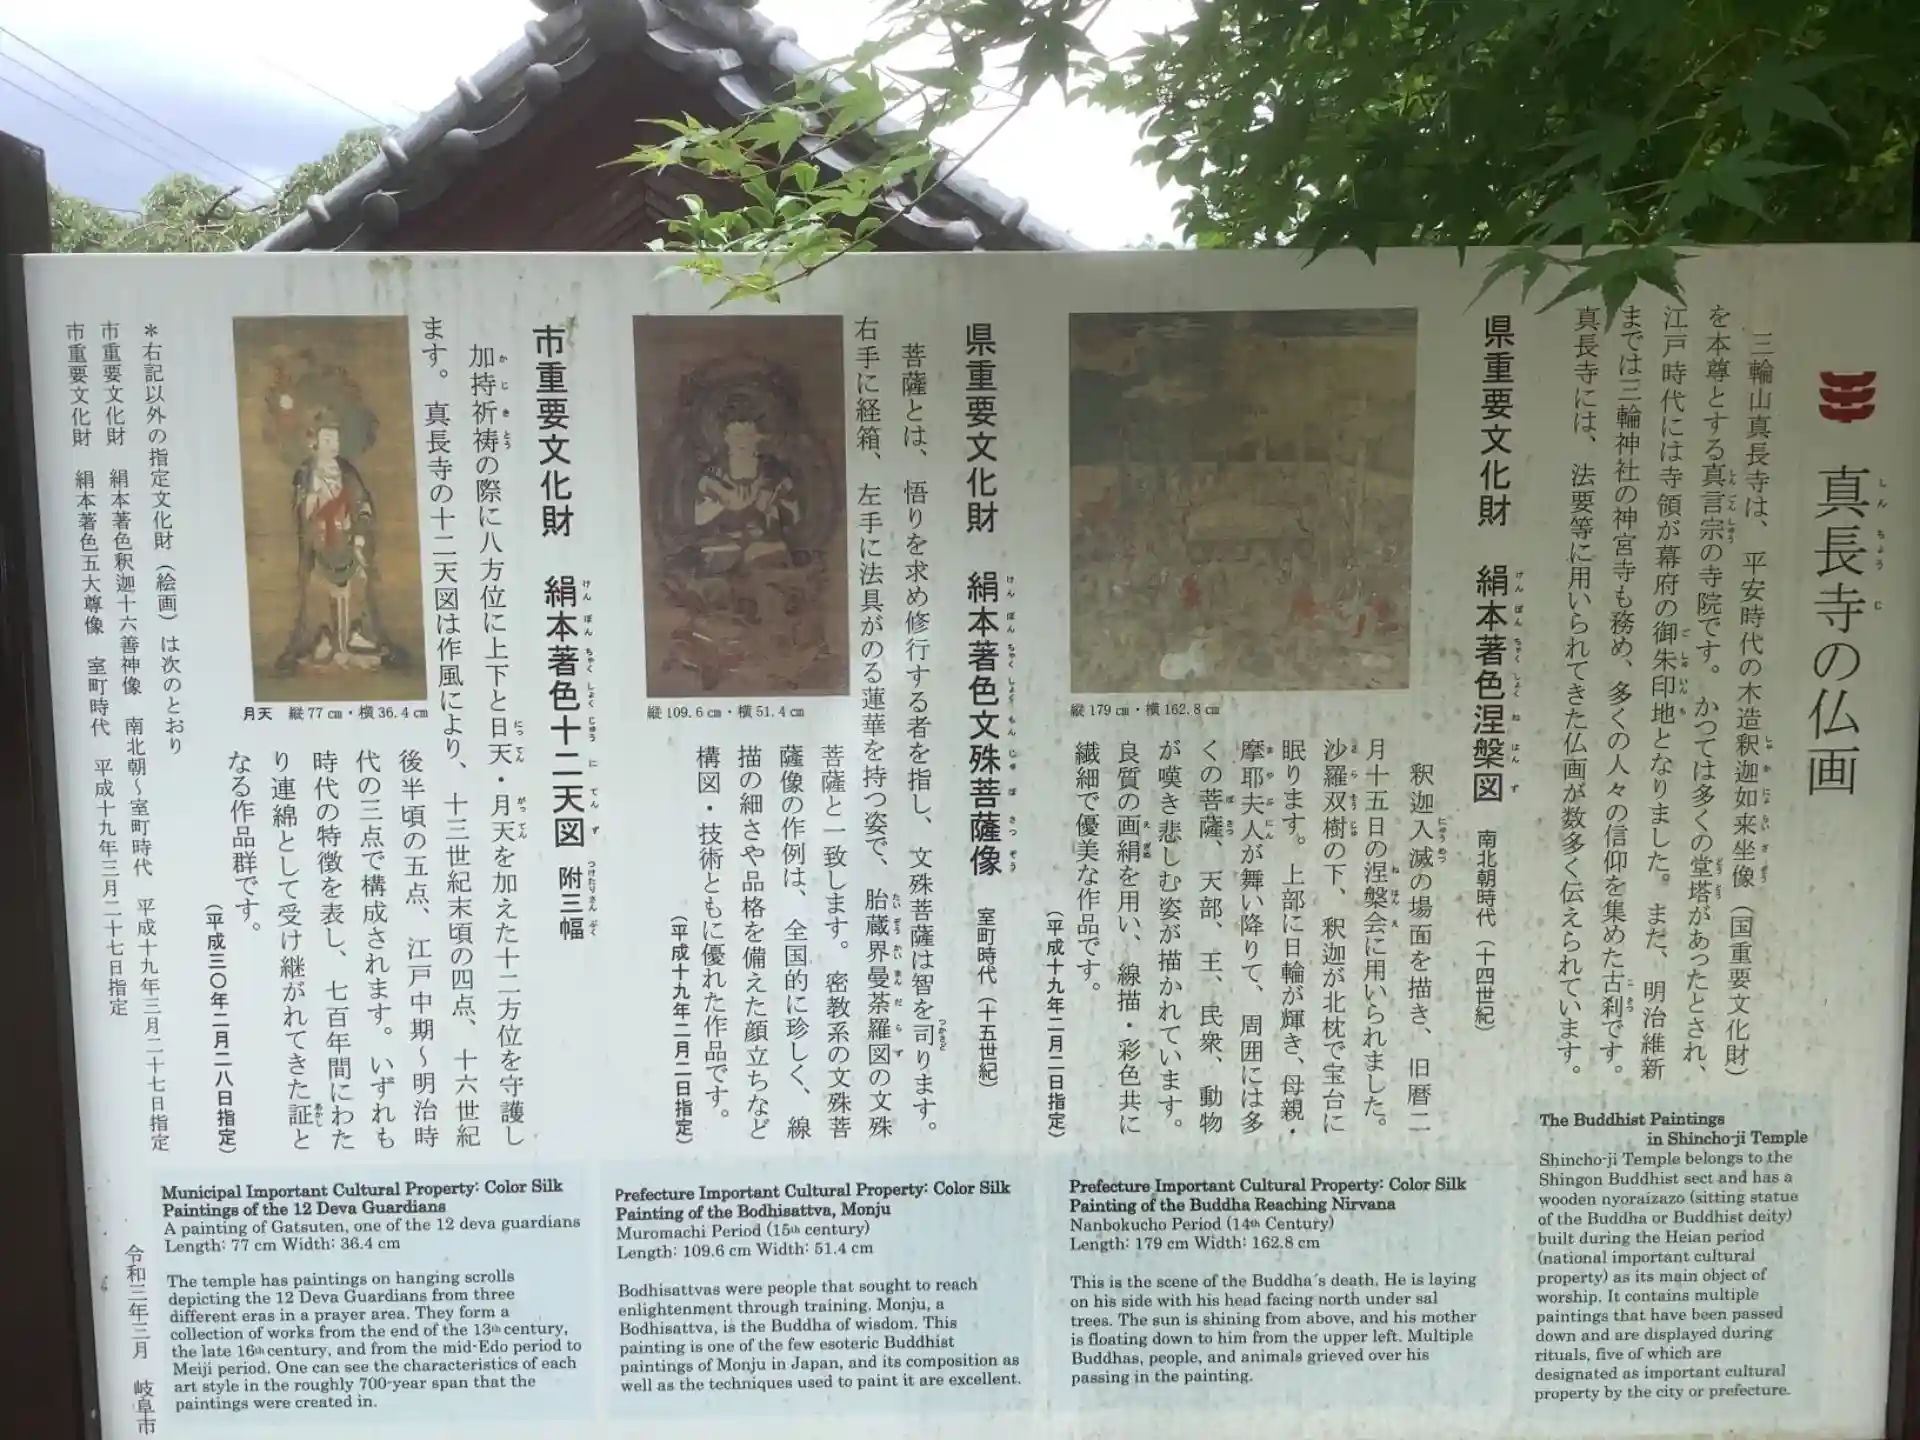 真長寺の仏画
しんちょうじ
三輪山真長寺は、平安時代の木造釈迦如来坐像（国重要文化財）
を本尊とする真言宗の寺院です。かつては多くの堂塔があったとされ、
江戸時代には寺領が幕府の御朱印地となりました。また、明治維新
までは三輪神社の神宮寺も務め、多くの人々の信仰を集めた古刹です。
真長寺には、法要等に用いられてきた仏画が数多く伝えられています。
県重要文化財 絹本著色涅槃図 南北朝時代（十四世紀）
けんぽんちゃくしょくねはんず
縦179㎝・横162.8㎝
釈迦入滅の場面を描き、旧暦二
月十五日の涅槃会に用いられました。
沙羅双樹の下、釈迦が北枕で宝台に
眠ります。上部に日輪が輝き、母親・
摩耶夫人が舞い降りて、周囲には多
くの菩薩、天部、王、民衆、動物
が嘆き悲しむ姿が描かれています。
良質の画絹を用い、線描・彩色共に
繊細で優美な作品です。
（平成十九年二月二日指定）
県重要文化財 絹本著色文殊菩薩像 室町時代（十五世紀）
けんぽんちゃくしょくもんじゅぼさつぞう
菩薩とは、悟りを求め修行する者を指し、文殊菩薩は智を司ります。
右手に経箱、左手に法具がのる蓮華を持つ姿で、胎蔵界曼荼羅図の文殊
菩薩と一致します。密教系の文殊菩
薩像の作例は、全国的に珍しく、線
描の細さや品格を備えた顔立ちなど
構図・技術ともに優れた作品です。
（平成十九年二月二日指定）
縦109.6㎝・横51.4㎝
市重要文化財 絹本著色十二天図 附三幅
けんぽんちゃくしょくじゅうにてんず つけたりさんぷく
加持祈祷の際に八方位に上下と日天・月天を加えた十二方位を守護し
ます。真長寺の十二天図は作風により、十三世紀末頃の四点、十六世紀
後半頃の五点、江戸中期～明治時
代の三点で構成されます。いずれも
時代の特徴を表し、七百年間にわた
り連綿として受け継がれてきた証と
なる作品群です。
（平成三〇年二月二八日指定）
月天 縦77㎝・横36.4㎝
＊右記以外の指定文化財（絵画）は次のとおり
市重要文化財 絹本著色釈迦十六善神像 南北朝～室町時代 平成十九年三月二十七日指定
市重要文化財 絹本著色五大尊像 室町時代 平成十九年三月二十七日指定
令和三年三月 岐阜市
The Buddhist Paintings
in Shincho-ji Temple
Shincho-ji Temple belongs to the
Shingon Buddhist sect and has a
wooden nyoraizazo (sitting statue
of the Buddha or Buddhist deity)
built during the Heian period
(national important cultural
property) as its main object of
worship. It contains multiple
paintings that have been passed
down and are displayed during
rituals, five of which are
designated as important cultural
property by the city or prefecture.
Prefecture Important Cultural Property: Color Silk
Painting of the Buddha Reaching Nirvana
Nanbokucho Period (14th Century)
Length: 179 cm Width: 162.8 cm
This is the scene of the Buddha's death. He is laying
on his side with his head facing north under sal
trees. The sun is shining from above, and his mother
is floating down to him from the upper left. Multiple
Buddhas, people, and animals grieved over his
passing in the painting.
Prefecture Important Cultural Property: Color Silk
Painting of the Bodhisattva, Monju
Muromachi Period (15th century)
Length: 109.6 cm Width: 51.4 cm
Bodhisattvas were people that sought to reach
enlightenment through training. Monju, a
Bodhisattva, is the Buddha of wisdom. This
painting is one of the few esoteric Buddhist
paintings of Monju in Japan, and its composition as
well as the techniques used to paint it are excellent.
Municipal Important Cultural Property: Color Silk
Paintings of the 12 Deva Guardians
A painting of Gatsuten, one of the 12 deva guardians
Length: 77 cm Width: 36.4 cm
The temple has paintings on hanging scrolls
depicting the 12 Deva Guardians from three
different eras in a prayer area. They form a
collection of works from the end of the 13th century,
the late 16th century, and from the mid-Edo period to
Meiji period. One can see the characteristics of each
art style in the roughly 700-year span that the
paintings were created in.